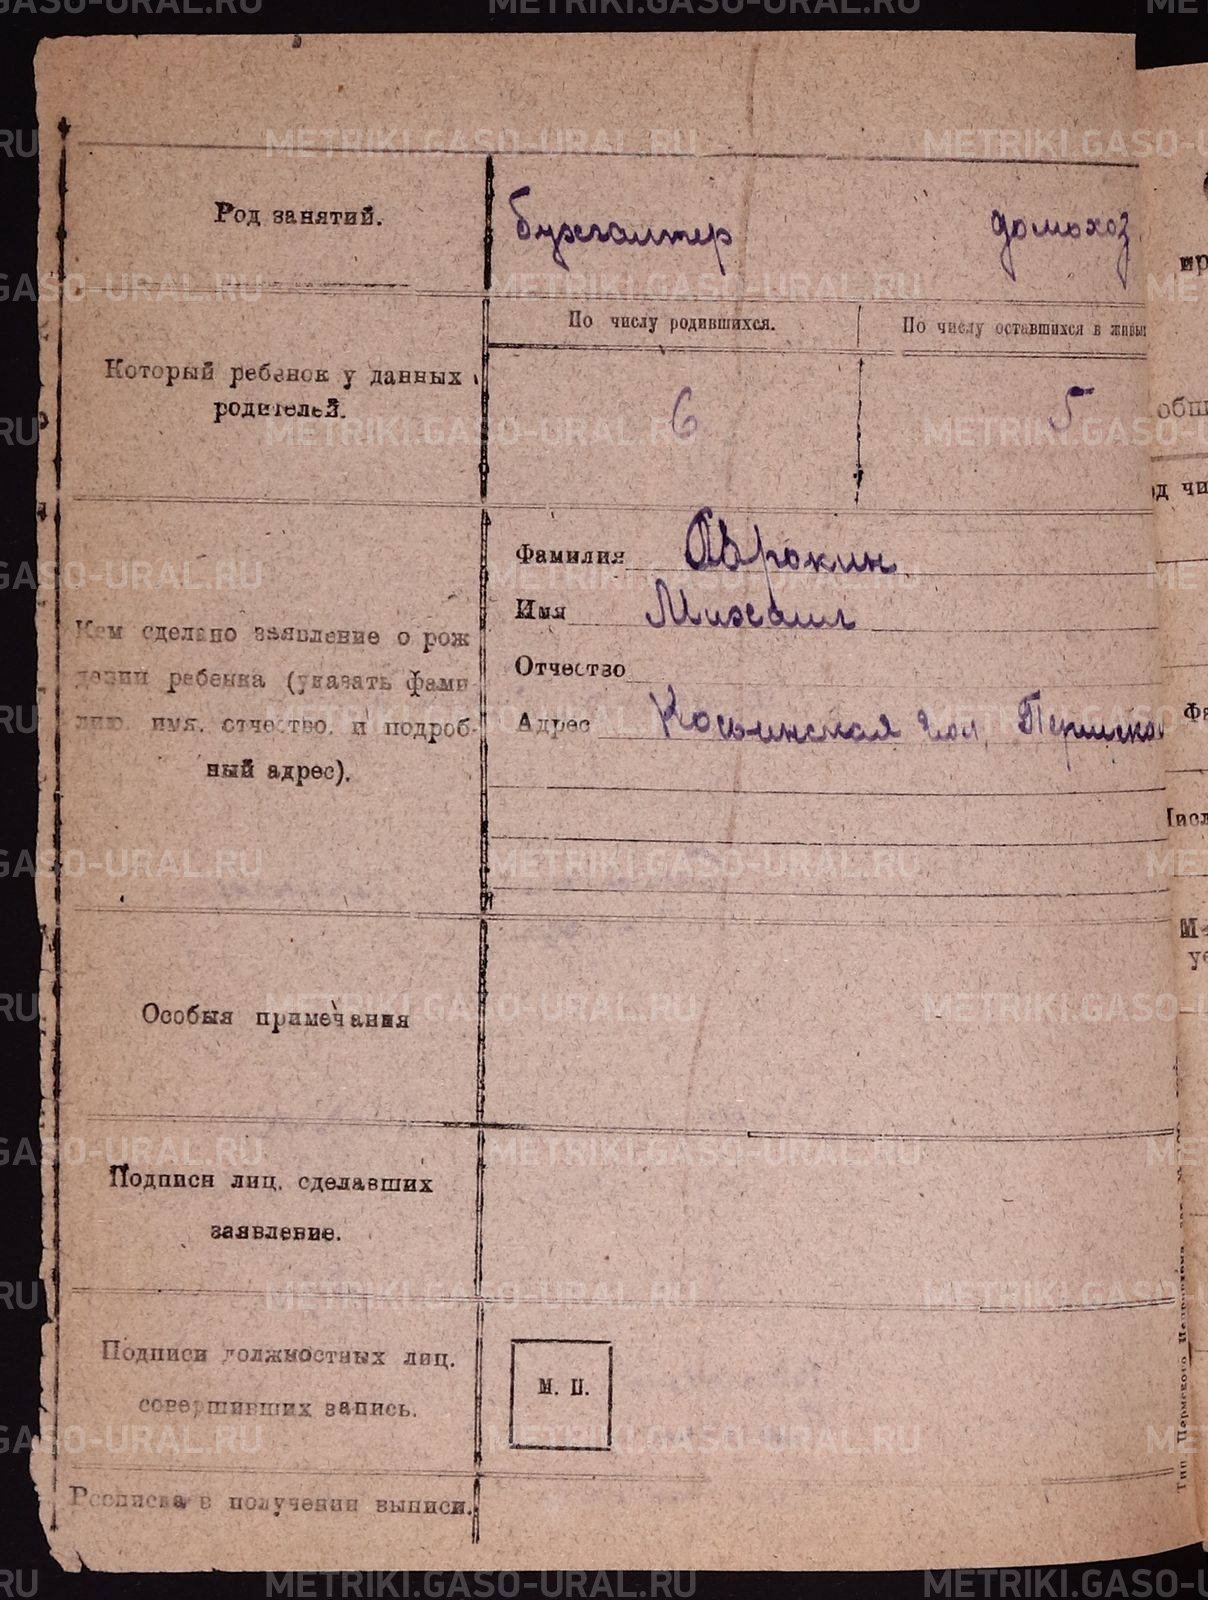 Род занятий.
бухгалтер
домохоз.
Который ребенок у данных
родителей.
По числу родившихся.
По числу оставшихся в живы
6
5
Кем сделано заявление о рож
дении ребенка (указать фами-
лию, имя, отчество, и подроб-
ный адрес).
Фамилия
Имя Михаил
Отчество
Адрес Косьинская
Особыя примечания
Подписи лиц, сделавших
заявление.
Подписи должностных лиц,
совершивших запись.
М. П.
Росписка в получении выписи.
METRIKI.GASO-URAL.RU